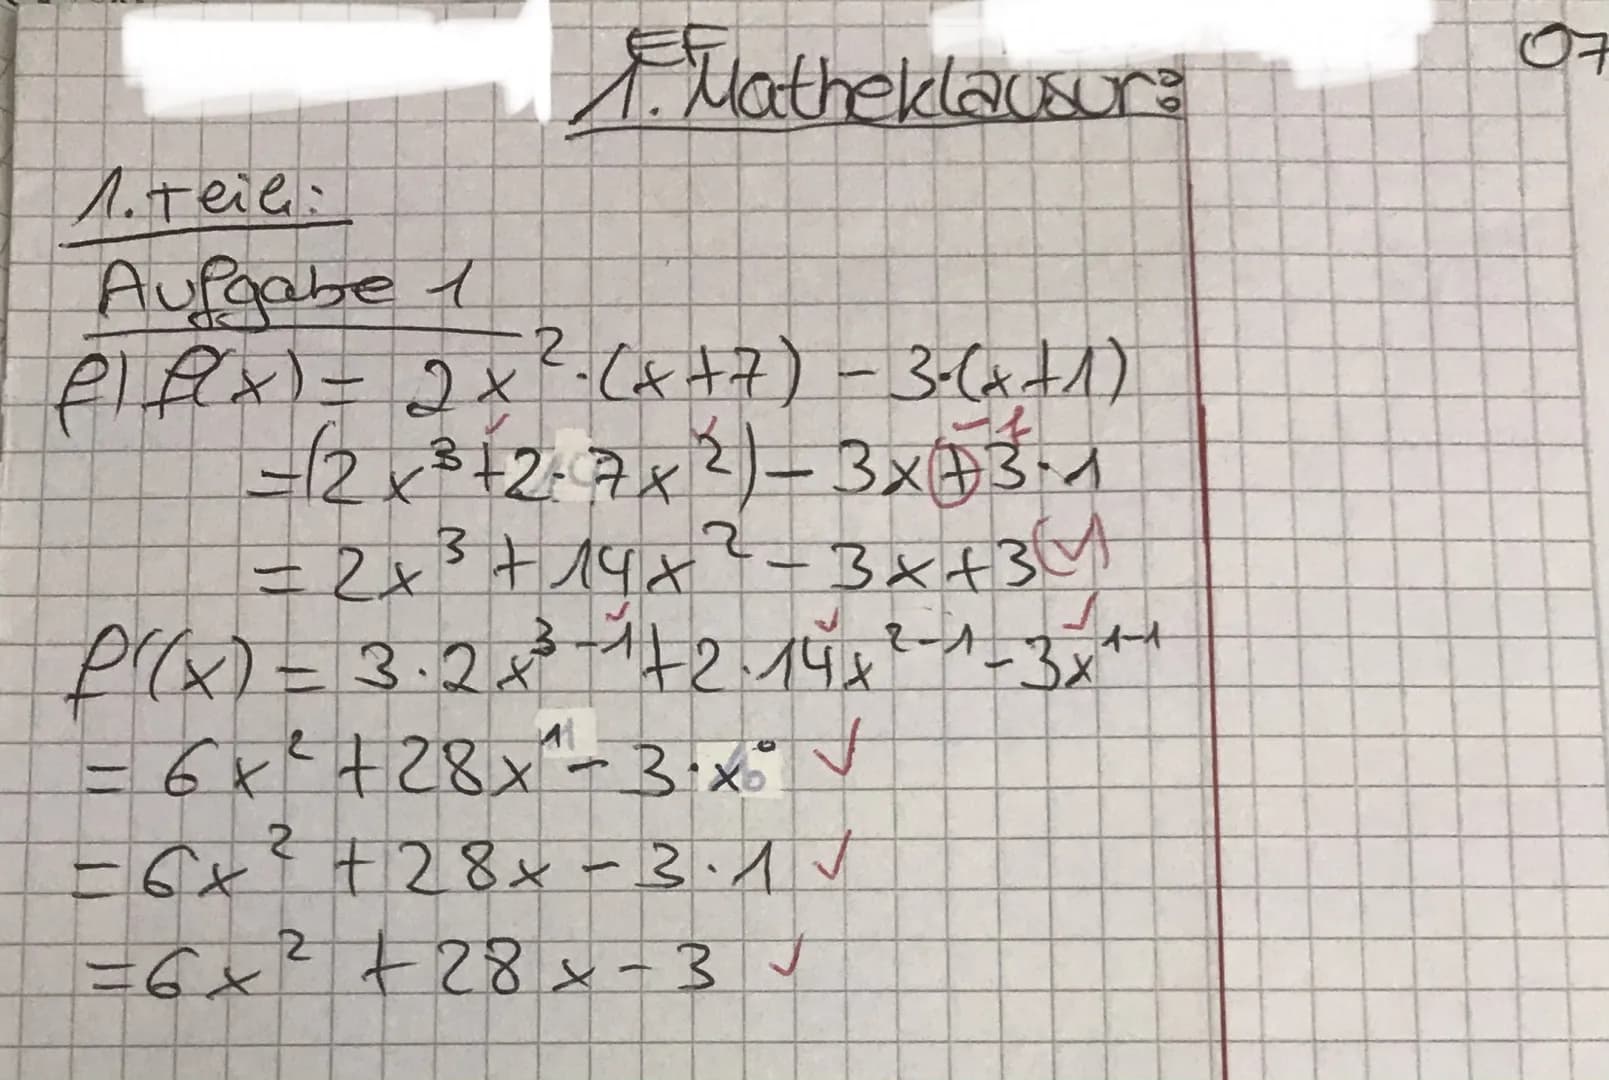 EF
07
1. Matheklausur:
1. Teil:
Aufgabe 1
f) f(x) = 2x² · (x+7) - 3·(x+1)
- 1
= (2x³ + 2·7x²) - 3x + 3·1
= 2x³ + 14x² - 3x + 3 (✓)
f'(x) = 3·2x³⁻¹ + 2·14x²⁻¹ - 3x¹⁻¹
= 6x² + 28x¹ - 3·x⁰ ✓
= 6x² + 28x - 3·1 ✓
= 6x² + 28x - 3 ✓